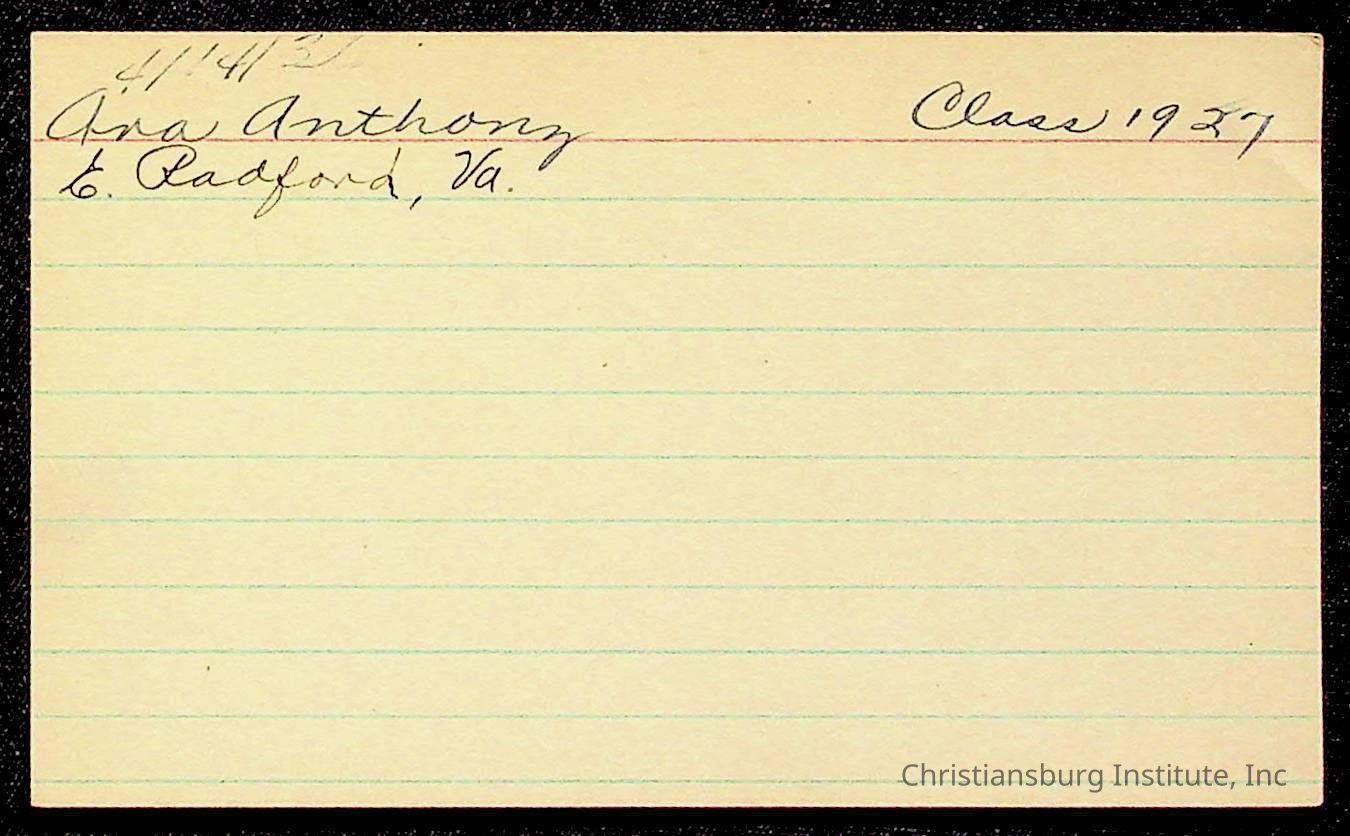 4/14/32
Ara Anthony Class 1927
E. Radford, Va.
Christiansburg Institute, Inc